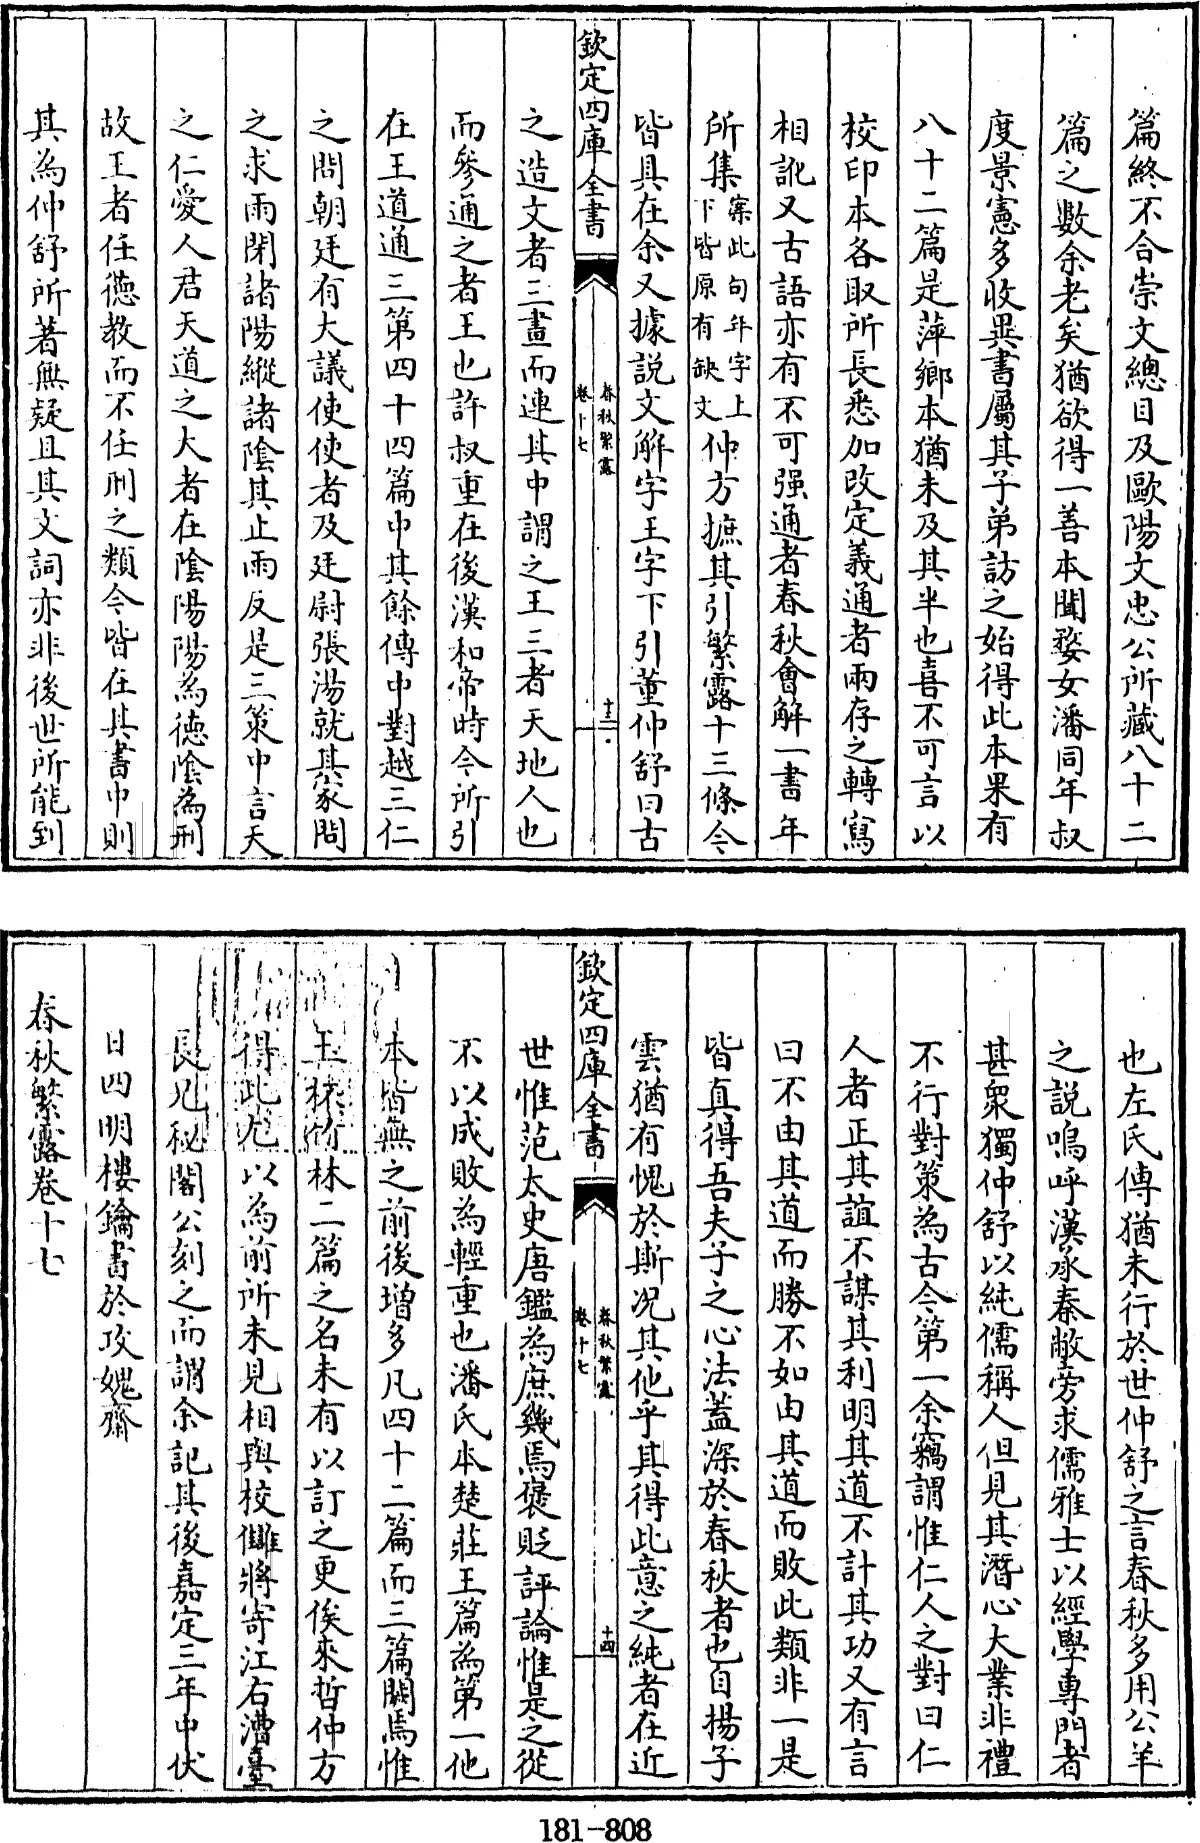 篇終不合崇文總目及歐陽文忠公所藏八十二
篇之數余老矣猶欲得一善本聞婺女潘同年叔
度景憲多收異書屬其子弟訪之始得此本果有
八十二篇是萍鄉本猶未及其半也喜不可言以
校印本各取所長悉加改定義通者兩存之轉寫
相訛又古語亦有不可强通者春秋會解一書年
所集案此句年字上下皆原有缺文仲方摭其引繁露十三條今
皆具在余又據說文解字王字下引董仲舒曰古
欽定四庫全書
春秋繁露
卷十七
十三
之造文者三畫而連其中謂之王三者天地人也
而參通之者王也許叔重在後漢和帝時今所引
在王道通三第四十四篇中其餘傳中對越三仁
之問朝廷有大議使使者及廷尉張湯就其家問
之求雨閉諸陽縱諸陰其止雨反是三策中言天
之仁愛人君天道之大者在陰陽陽為德陰為刑
故王者任德教而不任刑之類今皆在其書中則
其為仲舒所著無疑且其文詞亦非後世所能到
也左氏傳猶未行於世仲舒之言春秋多用公羊
之說嗚呼漢承秦敝旁求儒雅士以經學專門者
甚衆獨仲舒以純儒稱人但見其潛心大業非禮
不行對策為古今第一余竊謂惟仁人之對曰仁
人者正其誼不謀其利明其道不計其功又有言
曰不由其道而勝不如由其道而敗此類非一是
皆真得吾夫子之心法蓋深於春秋者也自揚子
雲猶有愧於斯况其他乎其得此意之純者在近
欽定四庫全書
春秋繁露
卷十七
十四
世惟范太史唐鑑為庶幾焉褒貶評論惟是之從
不以成敗為輕重也潘氏本楚莊王篇為第一他
本皆無之前後增多凡四十二篇而三篇闕焉惟
玉杯竹林二篇之名未有以訂之更俟來哲仲方
得此尤以為前所未見相與校讎將寄江右漕臺
長兄秘閣公刻之而謂余記其後嘉定三年中伏
日四明樓鑰書於攻媿齋
春秋繁露卷十七
181-808